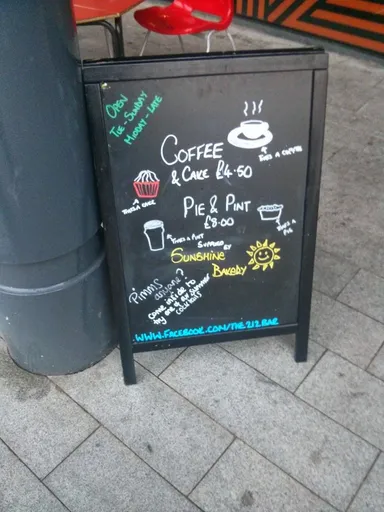 OPEN
TUE - SUNDAY
MIDDAY - LATE
COFFEE
& CAKE £4.50
THIS IS A COFFEE
THIS IS A CAKE
PIE & PINT
£8.00
THIS IS A PINT
THIS IS A PIE
SUPPLIED BY
SUNSHINE
BAKERY
Pimms
anyone?
come inside to
try one of our summer
cocktails
WWW.FACEBOOK.COM/THE.212.BAR